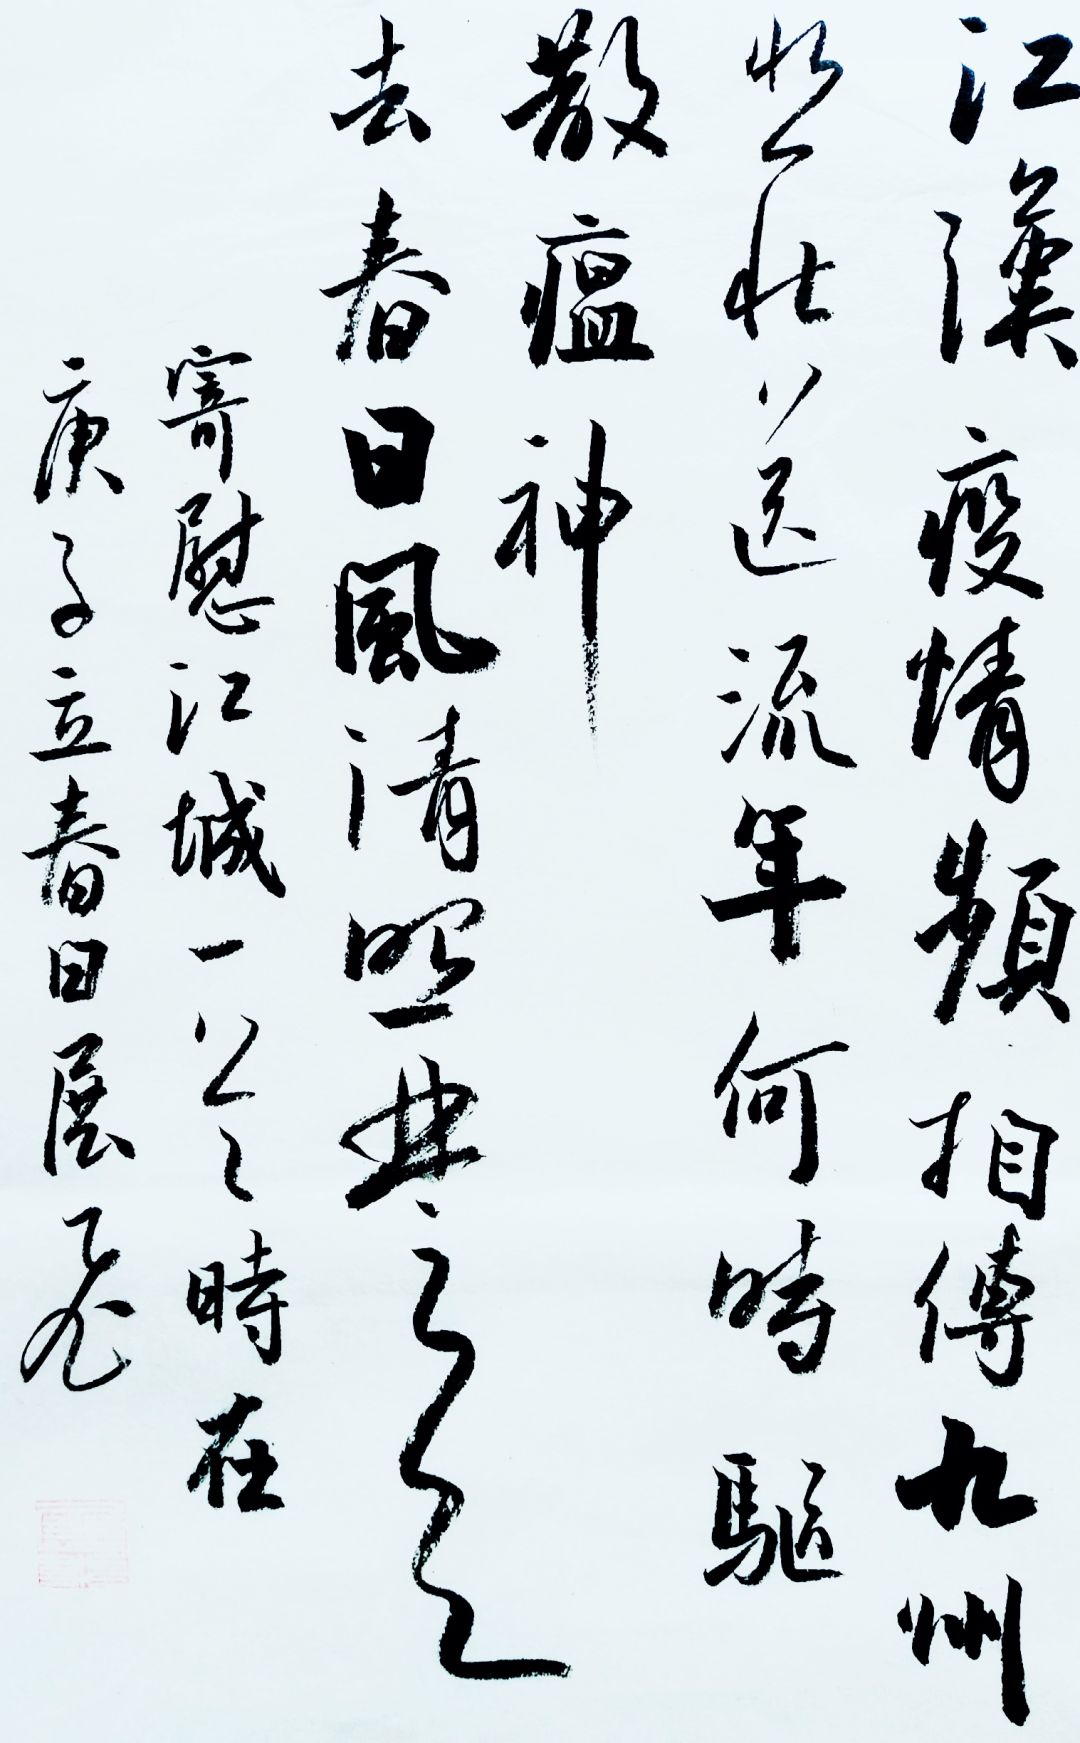 江漢疫情頻相傳九州
愁壯送流年何時驅
散瘟神
去春日風清照無之
寄慰江城一公之時在
庚子立春日展